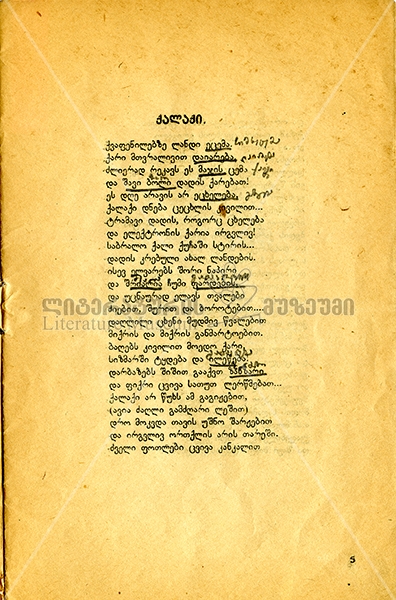 ქალაქი.
ქვაფენილებზე ლანდი ეცემა,
ქარი მთვრალივით დაიარება,
ძლიერად რეკავს ეს მაჯის ცემა
და შავი ბოლი დადის ქარებათ.
ეს დღე არავის არ ეცხელება,
ქალაქი დნება ცეცხლის
ტრამვაი დადის, როგორც ცხელება
და ელექტრონის ქარია ირგვლივ!
საბრალო ქალი ქუჩაში სტირის...
დადის კრებული ახალ ლანდების.
ისევ ელვარებს შორი ნაპირი
და ჩუმი
და უცნაურად ელავს თვალები
ლიტერატურის მუზეუმი
Literature
დაღლილი ცხენი მუდმივ წვალებით
მიქრის და მიქრის განმარტოებით.
ბაღებს კივილით მოედო ქარი,
სიზმარში ტყდება და ილეწება.
დარბაზებს შიშით გააქვთ ზანზარი
და ფიქრი ცვივა სათუთ ლერწმებათ...
ქალაქი არ წუხს ამ გაგიჟებით,
(ავია ძაღლი გამძღარი ლეშით)
დრო მოკვდა თავის უშნო შარჟებით
და ირგვლივ ორთქლის არის თარეში.
ძველი ფოთლები ცვივა კანკალით
5